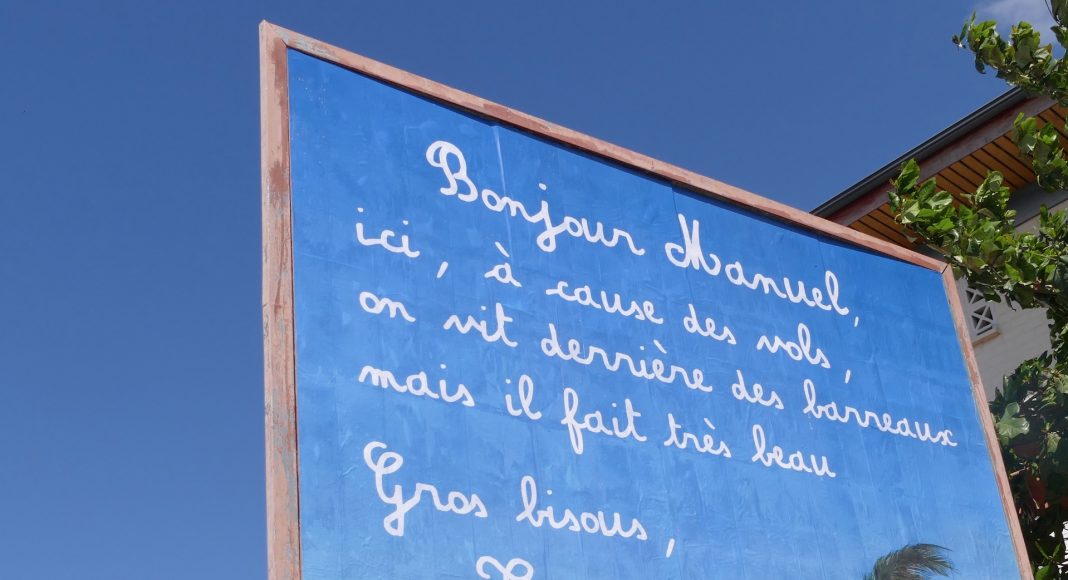 Bonjour Manuel,
ici, à cause des vols,
on vit derrière des barreaux
mais il fait très beau
Gros bisous,